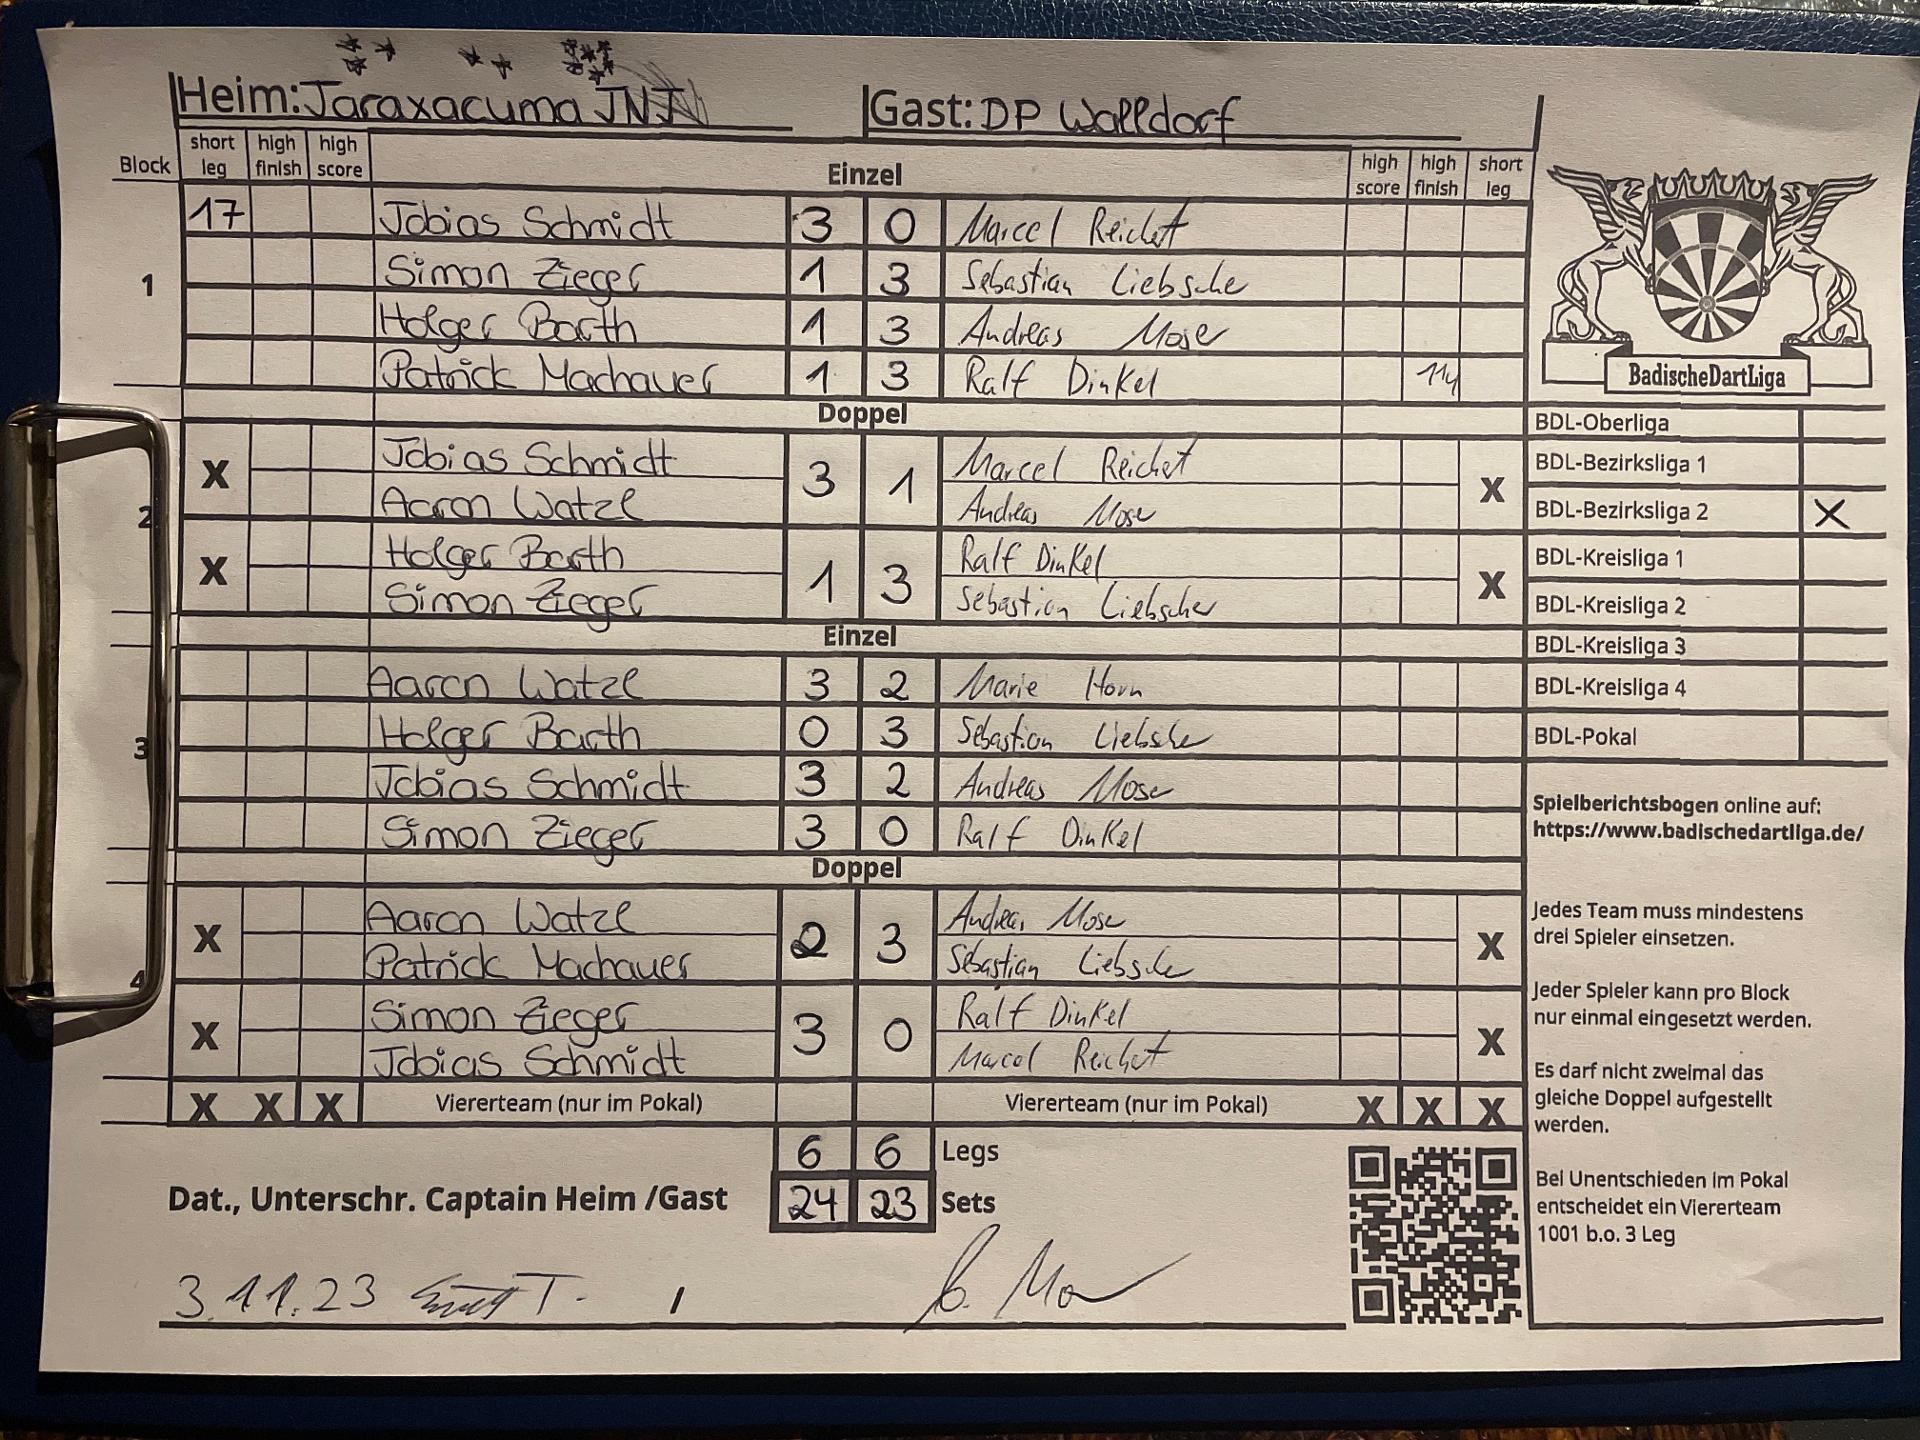 Heim: Jaraxacuma JNJ
Gast: DP Walldorf
Block short leg high finish high score Einzel high score high finish short leg
1
17 Tobias Schmidt 3 0 Marcel Reichet
Simon Zieger 1 3 Sebastian Liebsche
Holger Barth 1 3 Andreas Mose
Patrick Machauer 1 3 Ralf Dinkel 114
Doppel
2
X Tobias Schmidt 3 1 Marcel Reichet X
Aaron Watzl Andreas Mose
X Holger Barth 1 3 Ralf Dinkel X
Simon Zieger Sebastian Liebscher
Einzel
3
Aaron Watzl 3 2 Marie Horn
Holger Barth 0 3 Sebastian Liebsche
Tobias Schmidt 3 2 Andreas Mose
Simon Zieger 3 0 Ralf Dinkel
Doppel
4
X Aaron Watzl 2 3 Andreas Mose X
Patrick Machauer Sebastian Liebsche
X Simon Zieger 3 0 Ralf Dinkel X
Tobias Schmidt Marcel Reichet
X X X Viererteam (nur im Pokal) Viererteam (nur im Pokal) X X X
6 6 Legs
Dat., Unterschr. Captain Heim /Gast 24 23 Sets
3.11.23 /
BadischeDartLiga
BDL-Oberliga
BDL-Bezirksliga 1
BDL-Bezirksliga 2 X
BDL-Kreisliga 1
BDL-Kreisliga 2
BDL-Kreisliga 3
BDL-Kreisliga 4
BDL-Pokal
Spielberichtsbogen online auf:
https://www.badischedartliga.de/
Jedes Team muss mindestens
drei Spieler einsetzen.
Jeder Spieler kann pro Block
nur einmal eingesetzt werden.
Es darf nicht zweimal das
gleiche Doppel aufgestellt
werden.
Bei Unentschieden im Pokal
entscheidet ein Viererteam
1001 b.o. 3 Leg